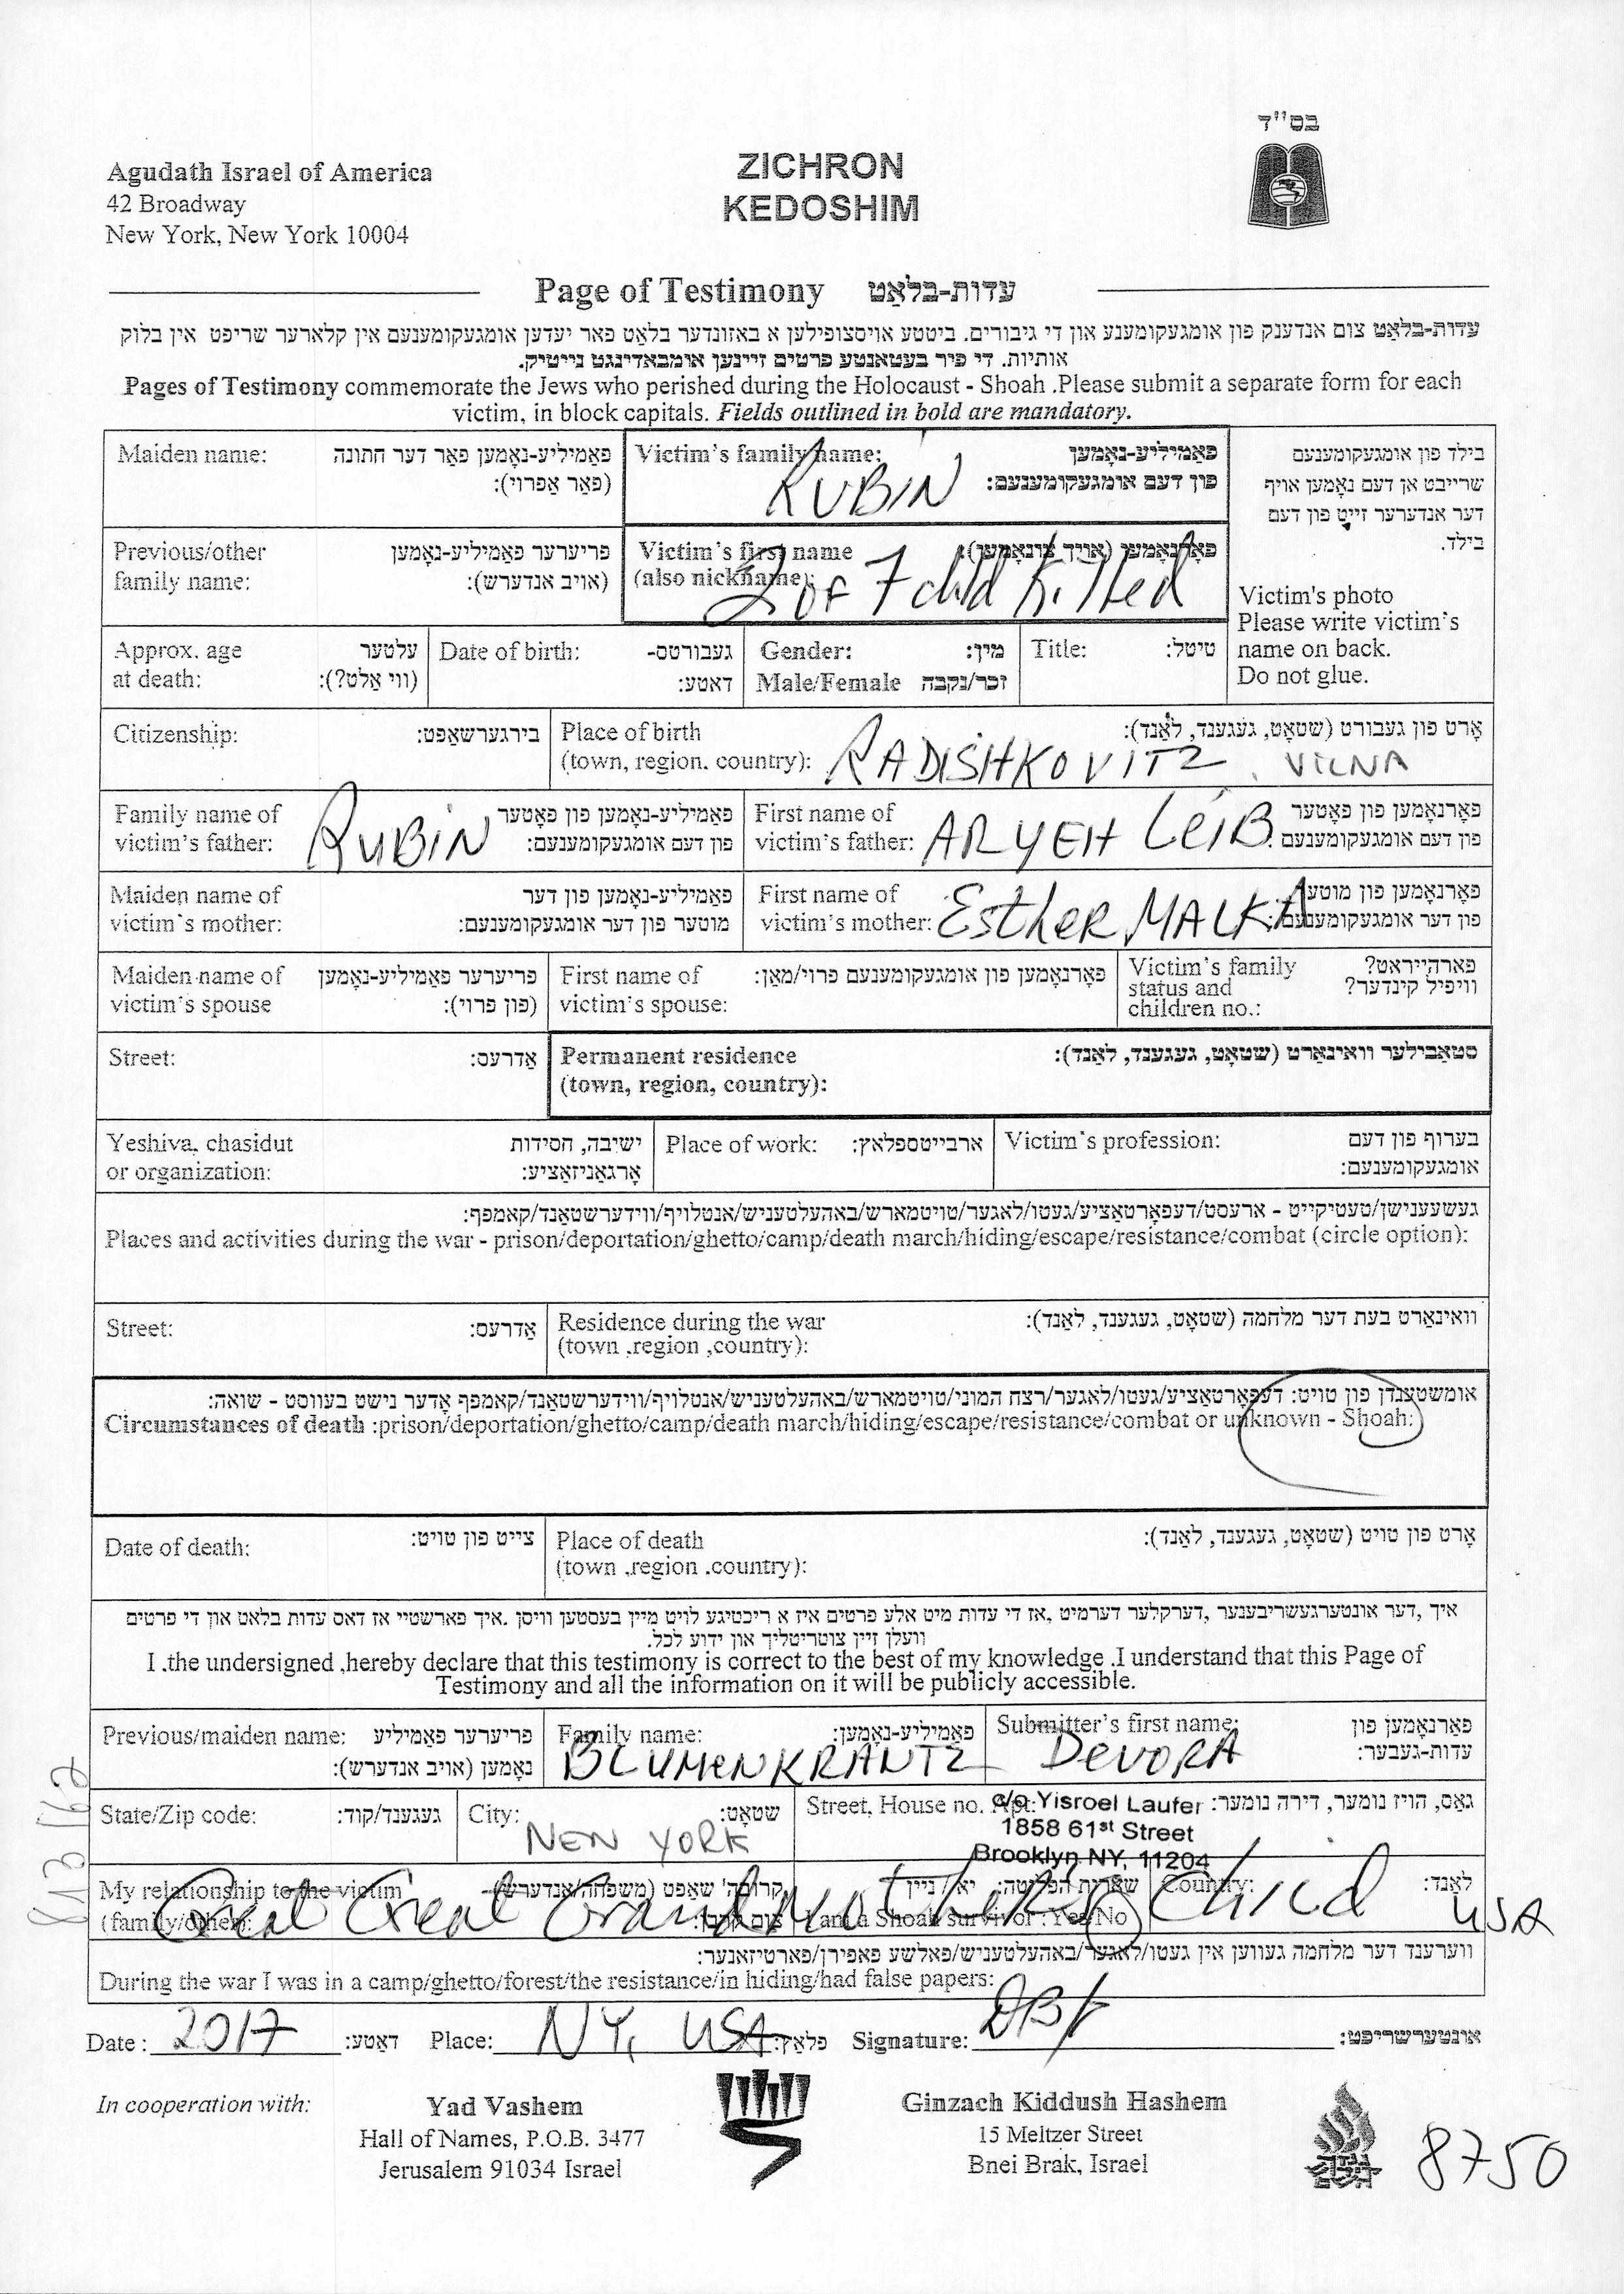 בס"ד
Agudath Israel of America
42 Broadway
New York, New York 10004
ZICHRON
KEDOSHIM
Page of Testimony עדות-בלאַט
עדות-בלאַט צום אנדענק פון אומגעקומענע און די גיבורים. ביטטע אויסצופילען א באזונדער בלאט פאר יעדען אומגעקומענעם אין קלארער שריפט אין בלוק
אותיות. די פיר בעטאנטע פרטים זיינען אומבאדינגט נייטיק.
Pages of Testimony commemorate the Jews who perished during the Holocaust - Shoah .Please submit a separate form for each
victim, in block capitals. Fields outlined in bold are mandatory.
Maiden name: פאַמיליע-נאָמען פאַר דער חתונה
(פאַר אַפרוי):
Victim's family name: פאַמיליע-נאָמען
פון דעם אומגעקומענעם:
RUBIN
בילד פון אומגעקומענעם
שרייבט אן דעם נאָמען אויף
דער אנדערער זייט פון דעם
בילד.
Victim's photo
Please write victim's
name on back.
Do not glue.
Previous/other פריערער פאַמיליע-נאָמען
family name: (אויב אנדערש):
Victim's first name פאָרנאָמען (אויך צונאָמען):
(also nickname):
2 of 7 child killed
Approx. age עלטער
at death: (ווי אַלט?):
Date of birth: געבורטס-
דאטע:
Gender: מין:
Male/Female זכר/נקבה
Title: טיטל:
Citizenship: בירגערשאַפט:
Place of birth אָרט פון געבורט (שטאָט, געגענד, לאַנד):
(town, region. country): RADISHKOVITZ, VILNA
Family name of פאַמיליע-נאָמען פון פאָטער
victim's father: פון דעם אומגעקומענעם:
RUBIN
First name of פאָרנאָמען פון פאָטער
victim's father: פון דעם אומגעקומענעם
ARYEH LEIB
Maiden name of פאַמיליע-נאָמען פון דער
victim's mother: מוטער פון דער אומגעקומענעם:
First name of פאָרנאָמען פון מוטער
victim's mother: פון דער אומגעקומענעם:
Esther MALKA
Maiden name of פריערער פאַמיליע-נאָמען
victim's spouse (פון פרוי):
First name of פאָרנאָמען פון אומגעקומענעם פרוי/מאַן:
victim's spouse:
Victim's family פארהייראט?
status and וויפיל קינדער?
children no.:
Street: אַדרעס:
Permanent residence סטאַבילער וואוינאָרט (שטאָט, געגענד, לאַנד):
(town, region, country):
Yeshiva, chasidut ישיבה, חסידות
or organization: אָרגאַניזאַציע:
Place of work: ארבייטספלאץ:
Victim's profession: בערוף פון דעם
אומגעקומענעם:
געשעענישן/טעטיקייט - ארעסט/דעפאָרטאַציע/געטו/לאגער/טויטמארש/באהעלטעניש/אנטלויף/ווידערשטאַנד/קאמפף:
Places and activities during the war - prison/deportation/ghetto/camp/death march/hiding/escape/resistance/combat (circle option):
Street: אַדרעס:
Residence during the war וואוינאָרט בעת דער מלחמה (שטאָט, געגענד, לאַנד):
(town ,region ,country):
אומשטענדן פון טויט: דעפאָרטאַציע/געטו/לאגער/רצח המוני/טויטמארש/באהעלטעניש/אנטלויף/ווידערשטאַנד/קאמפף אָדער נישט בעוווסט - שואה:
Circumstances of death :prison/deportation/ghetto/camp/death march/hiding/escape/resistance/combat or unknown - Shoah:
Date of death: צייט פון טויט:
Place of death אָרט פון טויט (שטאָט, געגענד, לאַנד):
(town ,region .country):
איך ,דער אונטערגעשריבענער ,דערקלער דערמיט ,אז די עדות מיט אלע פרטים איז א ריכטיגע לויט מיין בעסטען וויסן .איך פארשטיי אז דאס עדות בלאט און די פרטים
וועלן זיין צוטריטליך און ידוע לכל.
I .the undersigned ,hereby declare that this testimony is correct to the best of my knowledge .I understand that this Page of
Testimony and all the information on it will be publicly accessible.
Previous/maiden name: פריערער פאַמיליע
נאָמען (אויב אנדערש):
Family name: פאַמיליע-נאָמען:
BLUMENKRANTZ
Submitter's first name: פאַרנאָמען פון
עדות-געבער:
DEVORA
State/Zip code: געגענד/קוד:
City: שטאָט:
NEW YORK
Street, House no. Apt: גאַס, הויז נומער, דירה נומער:
c/o Yisroel Laufer
1858 61st Street
Brooklyn NY, 11204
My relationship to the victim קרובה' שאַפט (משפּחה/אנדערש)
(family/other):
Great Great Grandmother's Child
שארית הפליטה: יא / ניין
I am a Shoah survivor :Yes/No
Country: לאַנד:
USA
ווערענד דער מלחמה געווען אין געטו/לאגער/באהעלטעניש/פאלשע פאפירן/פארטיזאנער:
During the war I was in a camp/ghetto/forest/the resistance/in hiding/had false papers:
Date : 2017 דאַטע: Place: NY, USA פלאַץ: Signature: DBK אונטערשריפט:
In cooperation with:
Yad Vashem
Hall of Names, P.O.B. 3477
Jerusalem 91034 Israel
Ginzach Kiddush Hashem
15 Meltzer Street
Bnei Brak, Israel
8750